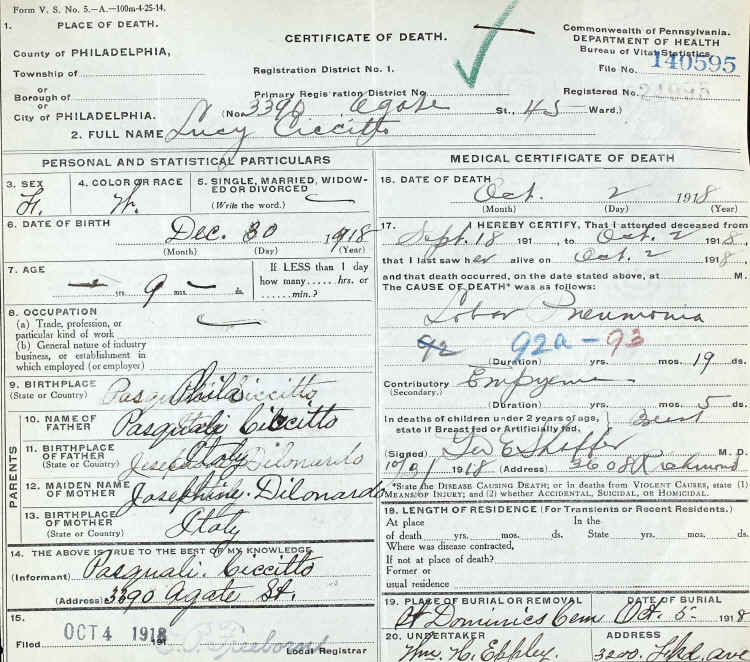 Form V. S. No. 5.—A.—100m-4-25-14.
1. PLACE OF DEATH.
County of PHILADELPHIA,
Township of
or
Borough of
or
City of PHILADELPHIA.
CERTIFICATE OF DEATH.
Registration District No. 1.
Primary Registration District No.
(No. 3390 Agate St., 45 Ward.)
Commonwealth of Pennsylvania.
DEPARTMENT OF HEALTH
Bureau of Vital Statistics.
File No. 140595
Registered No.
2. FULL NAME Lucy Ciccitto
PERSONAL AND STATISTICAL PARTICULARS
3. SEX
F.
4. COLOR OR RACE
W.
5. SINGLE, MARRIED, WIDOWED OR DIVORCED
(Write the word.)
6. DATE OF BIRTH
Dec. 30 1918
(Month) (Day) (Year)
7. AGE
— yrs. 9 mos. — ds.
If LESS than 1 day
how many......hrs. or
......min.?
8. OCCUPATION
(a) Trade, profession, or
particular kind of work
(b) General nature of industry
business, or establishment in
which employed (or employer)
9. BIRTHPLACE
(State or Country) Phila
10. NAME OF
FATHER Pasquali Ciccitto
11. BIRTHPLACE
OF FATHER
(State or Country) Italy
12. MAIDEN NAME
OF MOTHER Josephine Dilonardo
13. BIRTHPLACE
OF MOTHER
(State or Country) Italy
PARENTS
14. THE ABOVE IS TRUE TO THE BEST OF MY KNOWLEDGE
(Informant) Pasquali. Ciccitto
(Address) 3390 Agate St.
15.
Filed OCT 4 1918 191
Local Registrar
MEDICAL CERTIFICATE OF DEATH
16. DATE OF DEATH
Oct. 2 1918
(Month) (Day) (Year)
17. I HEREBY CERTIFY, That I attended deceased from
Sept. 18 191 , to Oct. 2 1918,
that I last saw her alive on Oct. 2 1918,
and that death occurred, on the date stated above, at M.
The CAUSE OF DEATH* was as follows:
Lobar Pneumonia
92 92a - 93
(Duration) yrs. mos. 19 ds.
Contributory Empyema
(Secondary.)
(Duration) yrs. mos. 5 ds.
In deaths of children under 2 years of age,
state if Breast fed or Artificially fed. Breast
(Signed) Geo E Shaffer M. D.
10/3/1918 (Address) 3608 Richmond
*State the DISEASE CAUSING DEATH; or in deaths from VIOLENT CAUSES, state (1)
MEANS OF INJURY; and (2) whether ACCIDENTAL, SUICIDAL, OR HOMICIDAL.
18. LENGTH OF RESIDENCE (For Transients or Recent Residents.)
At place In the
of death yrs. mos. ds. State yrs. mos. ds.
Where was disease contracted,
If not at place of death?
Former or
usual residence
19. PLACE OF BURIAL OR REMOVAL
St Dominics Cem
DATE OF BURIAL
Oct. 5 1918
20. UNDERTAKER
Wm. H. Eppley
ADDRESS
3200. Fkd. ave